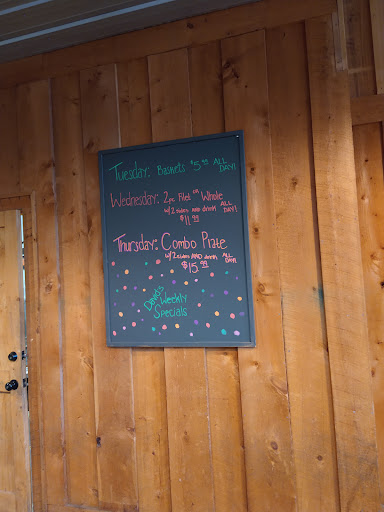 Tuesday: Baskets $5.99 ALL DAY!
Wednesday: 2pc Filet or Whole
w/2 sides AND drink ALL DAY!
$11.99
Thursday: Combo Plate
w/2 sides AND drink ALL DAY!
$15.99
Dave's
Weekly
Specials